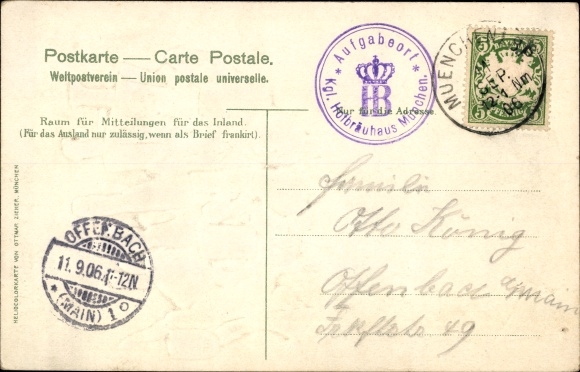 Postkarte — Carte Postale.
Weltpostverein — Union postale universelle.
Raum für Mitteilungen für das Inland.
(Für das Ausland nur zulässig, wenn als Brief frankirt).
* Aufgabeort *
Kgl. Hofbräuhaus München.
HB
Nur für die Adresse
MUENCHEN
5
BAYERN
5
Nm
06
OFFENBACH
11.9.06.11-12N.
* (MAIN) 1 o
Familie
Otto König
Offenbach a/Main
49
HELIOCOLORKARTE VON OTTMAR ZIEHER, MÜNCHEN